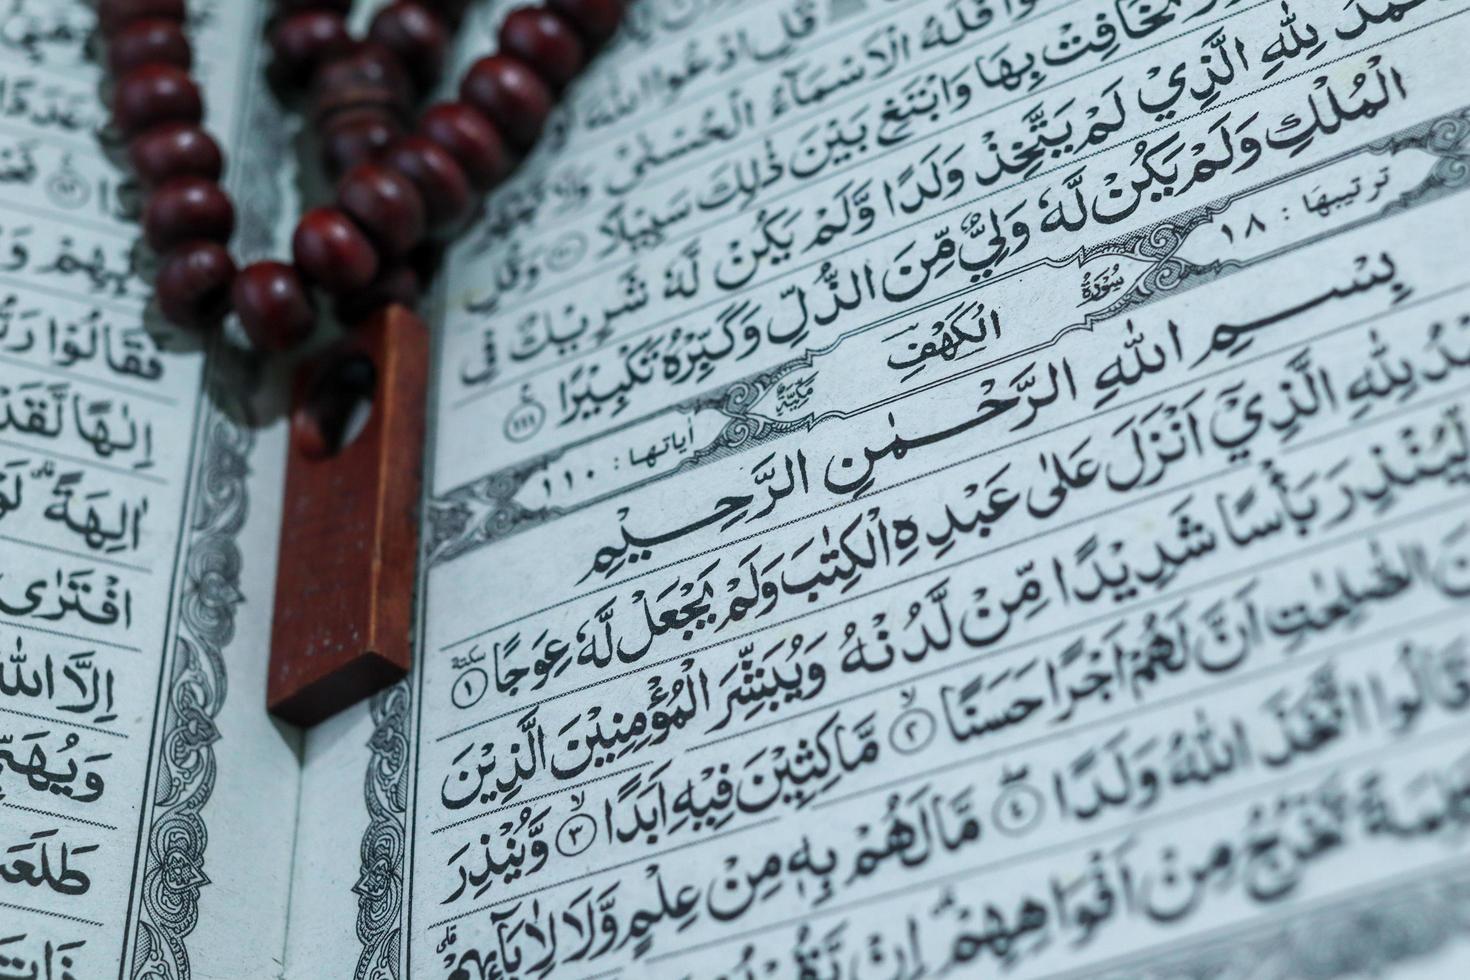 قُلِ ادْعُوا اللّٰهَ
فَلَهُ الْاَسْمَآءُ الْحُسْنٰى
تُخَافِتْ بِهَا وَابْتَغِ بَيْنَ ذٰلِكَ سَبِيْلًا ۝١١٠ وَقُلِ
لِلّٰهِ الَّذِيْ لَمْ يَتَّخِذْ وَلَدًا وَّلَمْ يَكُنْ لَّهٗ شَرِيْكٌ فِي
الْمُلْكِ وَلَمْ يَكُنْ لَّهٗ وَلِيٌّ مِّنَ الذُّلِّ وَكَبِّرْهُ تَكْبِيْرًا ۝١١١ ع
ترتيبها : ١٨ سُوْرَةُ الْكَهْفِ مَكِّيَّةٌ اٰياتها : ١١٠
بِسْمِ اللّٰهِ الرَّحْمٰنِ الرَّحِيْمِ
لِلّٰهِ الَّذِيْٓ اَنْزَلَ عَلٰى عَبْدِهِ الْكِتٰبَ وَلَمْ يَجْعَلْ لَّهٗ عِوَجًا ۝١ سكتة
لِّيُنْذِرَ بَأْسًا شَدِيْدًا مِّنْ لَّدُنْهُ وَيُبَشِّرَ الْمُؤْمِنِيْنَ الَّذِيْنَ
الصّٰلِحٰتِ اَنَّ لَهُمْ اَجْرًا حَسَنًا ۝٢ مَّاكِثِيْنَ فِيْهِ اَبَدًا ۝٣ وَّيُنْذِرَ
قَالُوا اتَّخَذَ اللّٰهُ وَلَدًا ۝٤ مَّا لَهُمْ بِهٖ مِنْ عِلْمٍ وَّلَا لِاٰبَآئِهِمْ قلى
تَخْرُجُ مِنْ اَفْوَاهِهِمْ اِنْ
فَقَالُوْا
اِلٰهًا لَّقَدْ
اٰلِهَةً
افْتَرٰى
اِلَّا اللّٰهَ
طَلَعَتْ
ذَاتَ